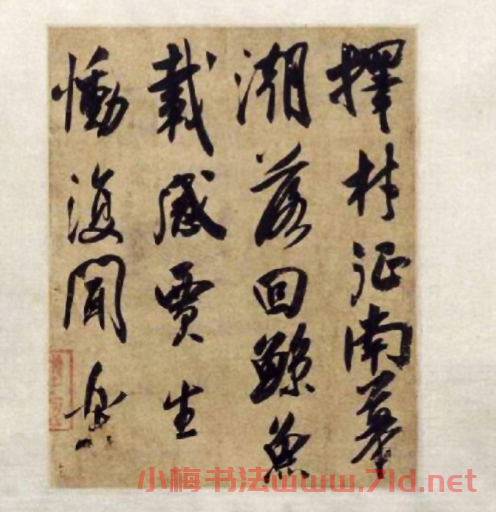 擇材征南幕
潮落回鯨魚
載感賈生
慟復聞樂
小梅书法www.7ld.net